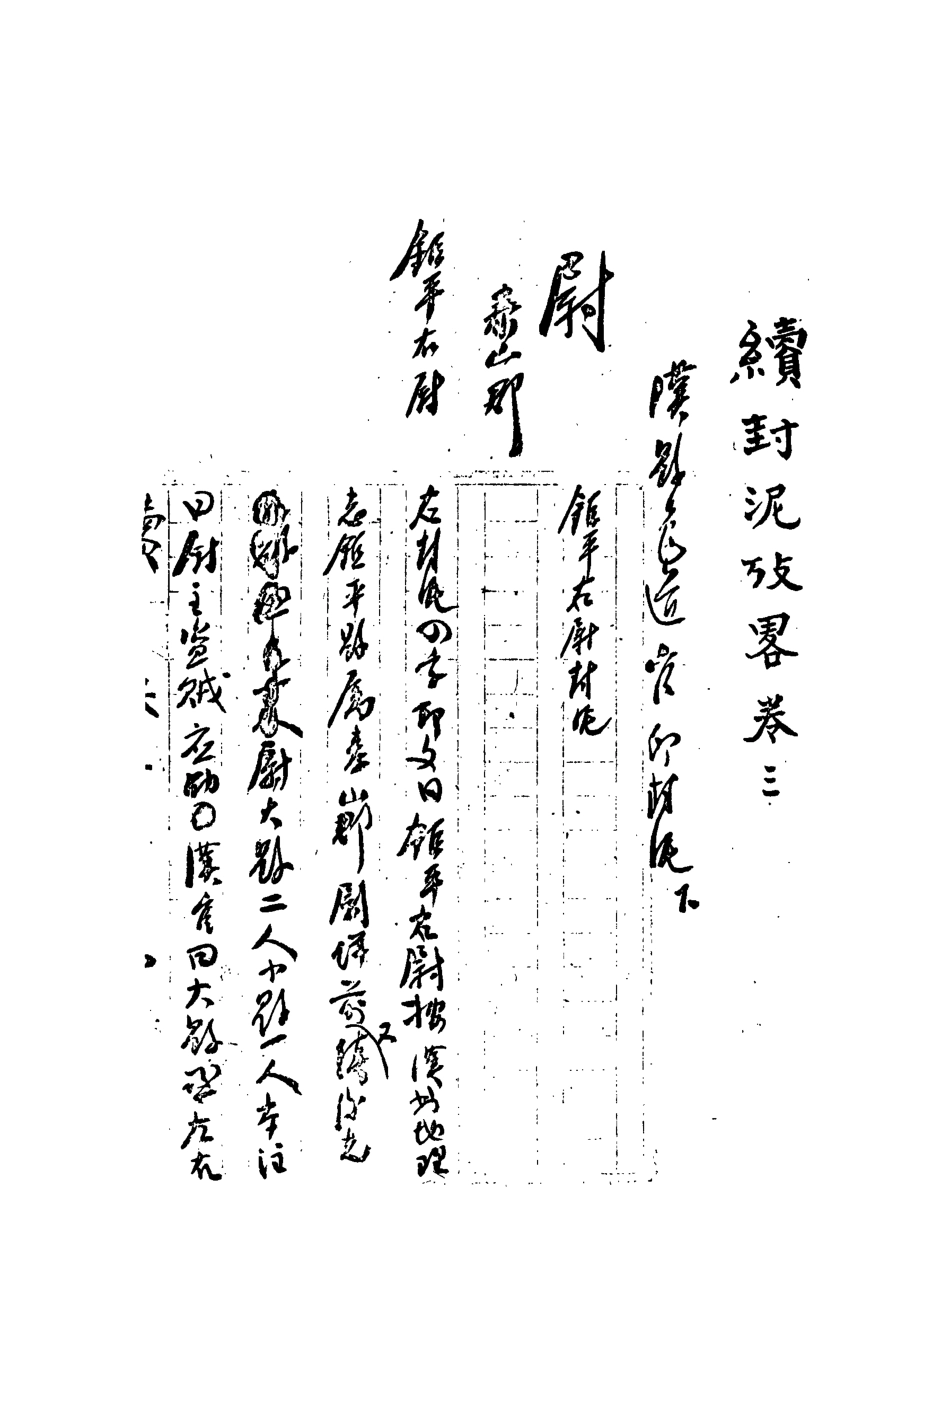 續封泥攷畧卷三
漢縣邑道官印封泥下
尉
泰山郡
鉅平右尉
鉅平右尉封泥
右封泥四字印文曰鉅平右尉按漢書地理
志鉅平縣屬泰山郡尉詳前又續漢志
尉大縣二人小縣一人本注
曰尉主盜賊應劭曰漢官曰大縣丞左右